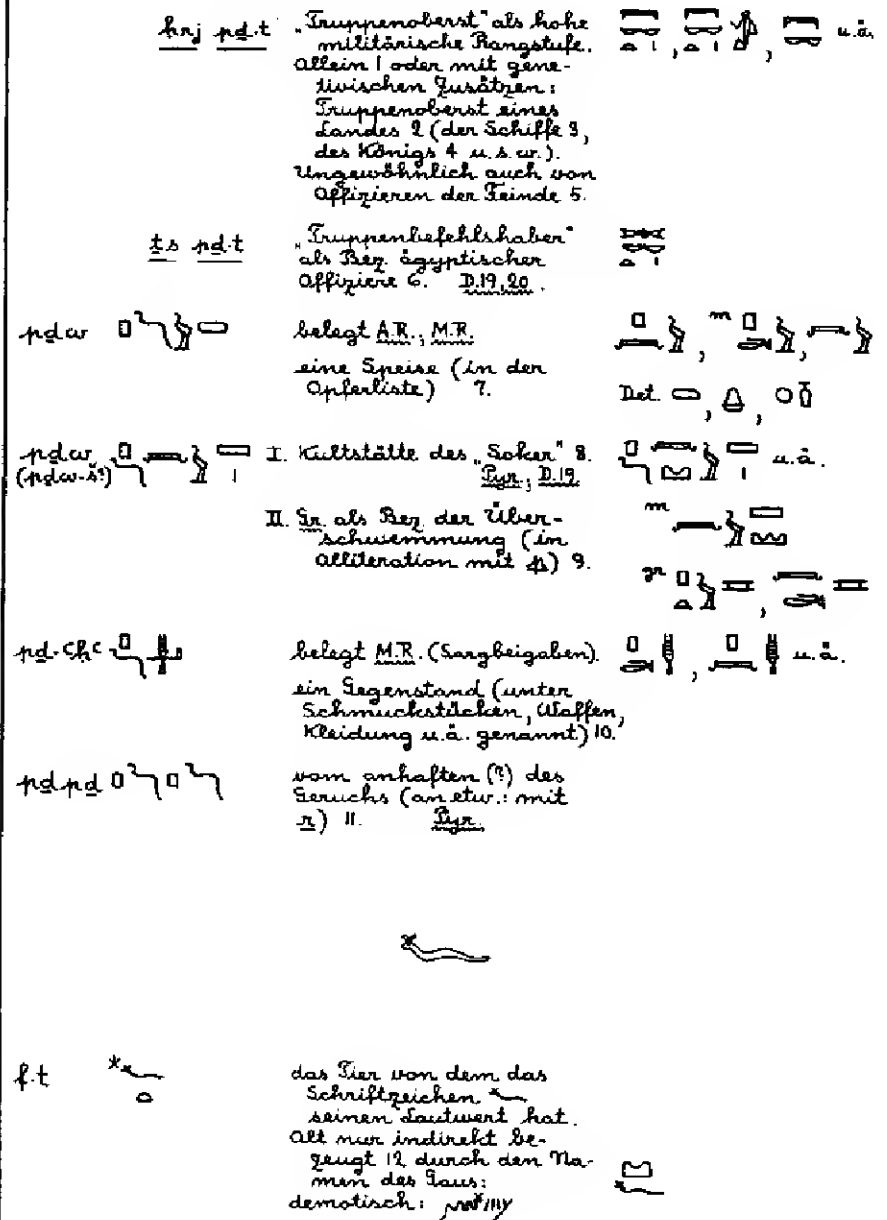 ḥrj pḏ.t „Truppenoberst" als hohe
militärische Rangstufe. u.ä.
Allein 1 oder mit gene-
tivischen Zusätzen:
Truppenoberst eines
Landes 2 (der Schiffe 3,
des Königs 4 u.s.w.).
Ungewöhnlich auch von
Offizieren der Feinde 5.
ṯs pḏ.t „Truppenbefehlshaber"
als Bez. ägyptischer
Offiziere 6. D.19,20.
pḏw belegt A.R.; M.R. m
eine Speise (in der
Opferliste) 7. Det.
pḏw I. Kultstätte des „Soker" 8. u.ä.
(pḏw-š?) Pyr.; D.19
II. Gr. als Bez. der Über- m
schwemmung (in
Alliteration mit p) 9. gr
pḏ-ꜥḥꜥ belegt M.R. (Sargbeigaben). u.ä.
ein Gegenstand (unter
Schmuckstücken, Waffen,
Kleidung u.ä. genannt) 10.
pḏpḏ vom anhaften (?) des
Geruchs (an etw.: mit
r) 11. Pyr.
f.t das Tier von dem das
Schriftzeichen
seinen Lautwert hat.
Alt nur indirekt be-
zeugt 12 durch den Na-
men des Gaus:
demotisch: